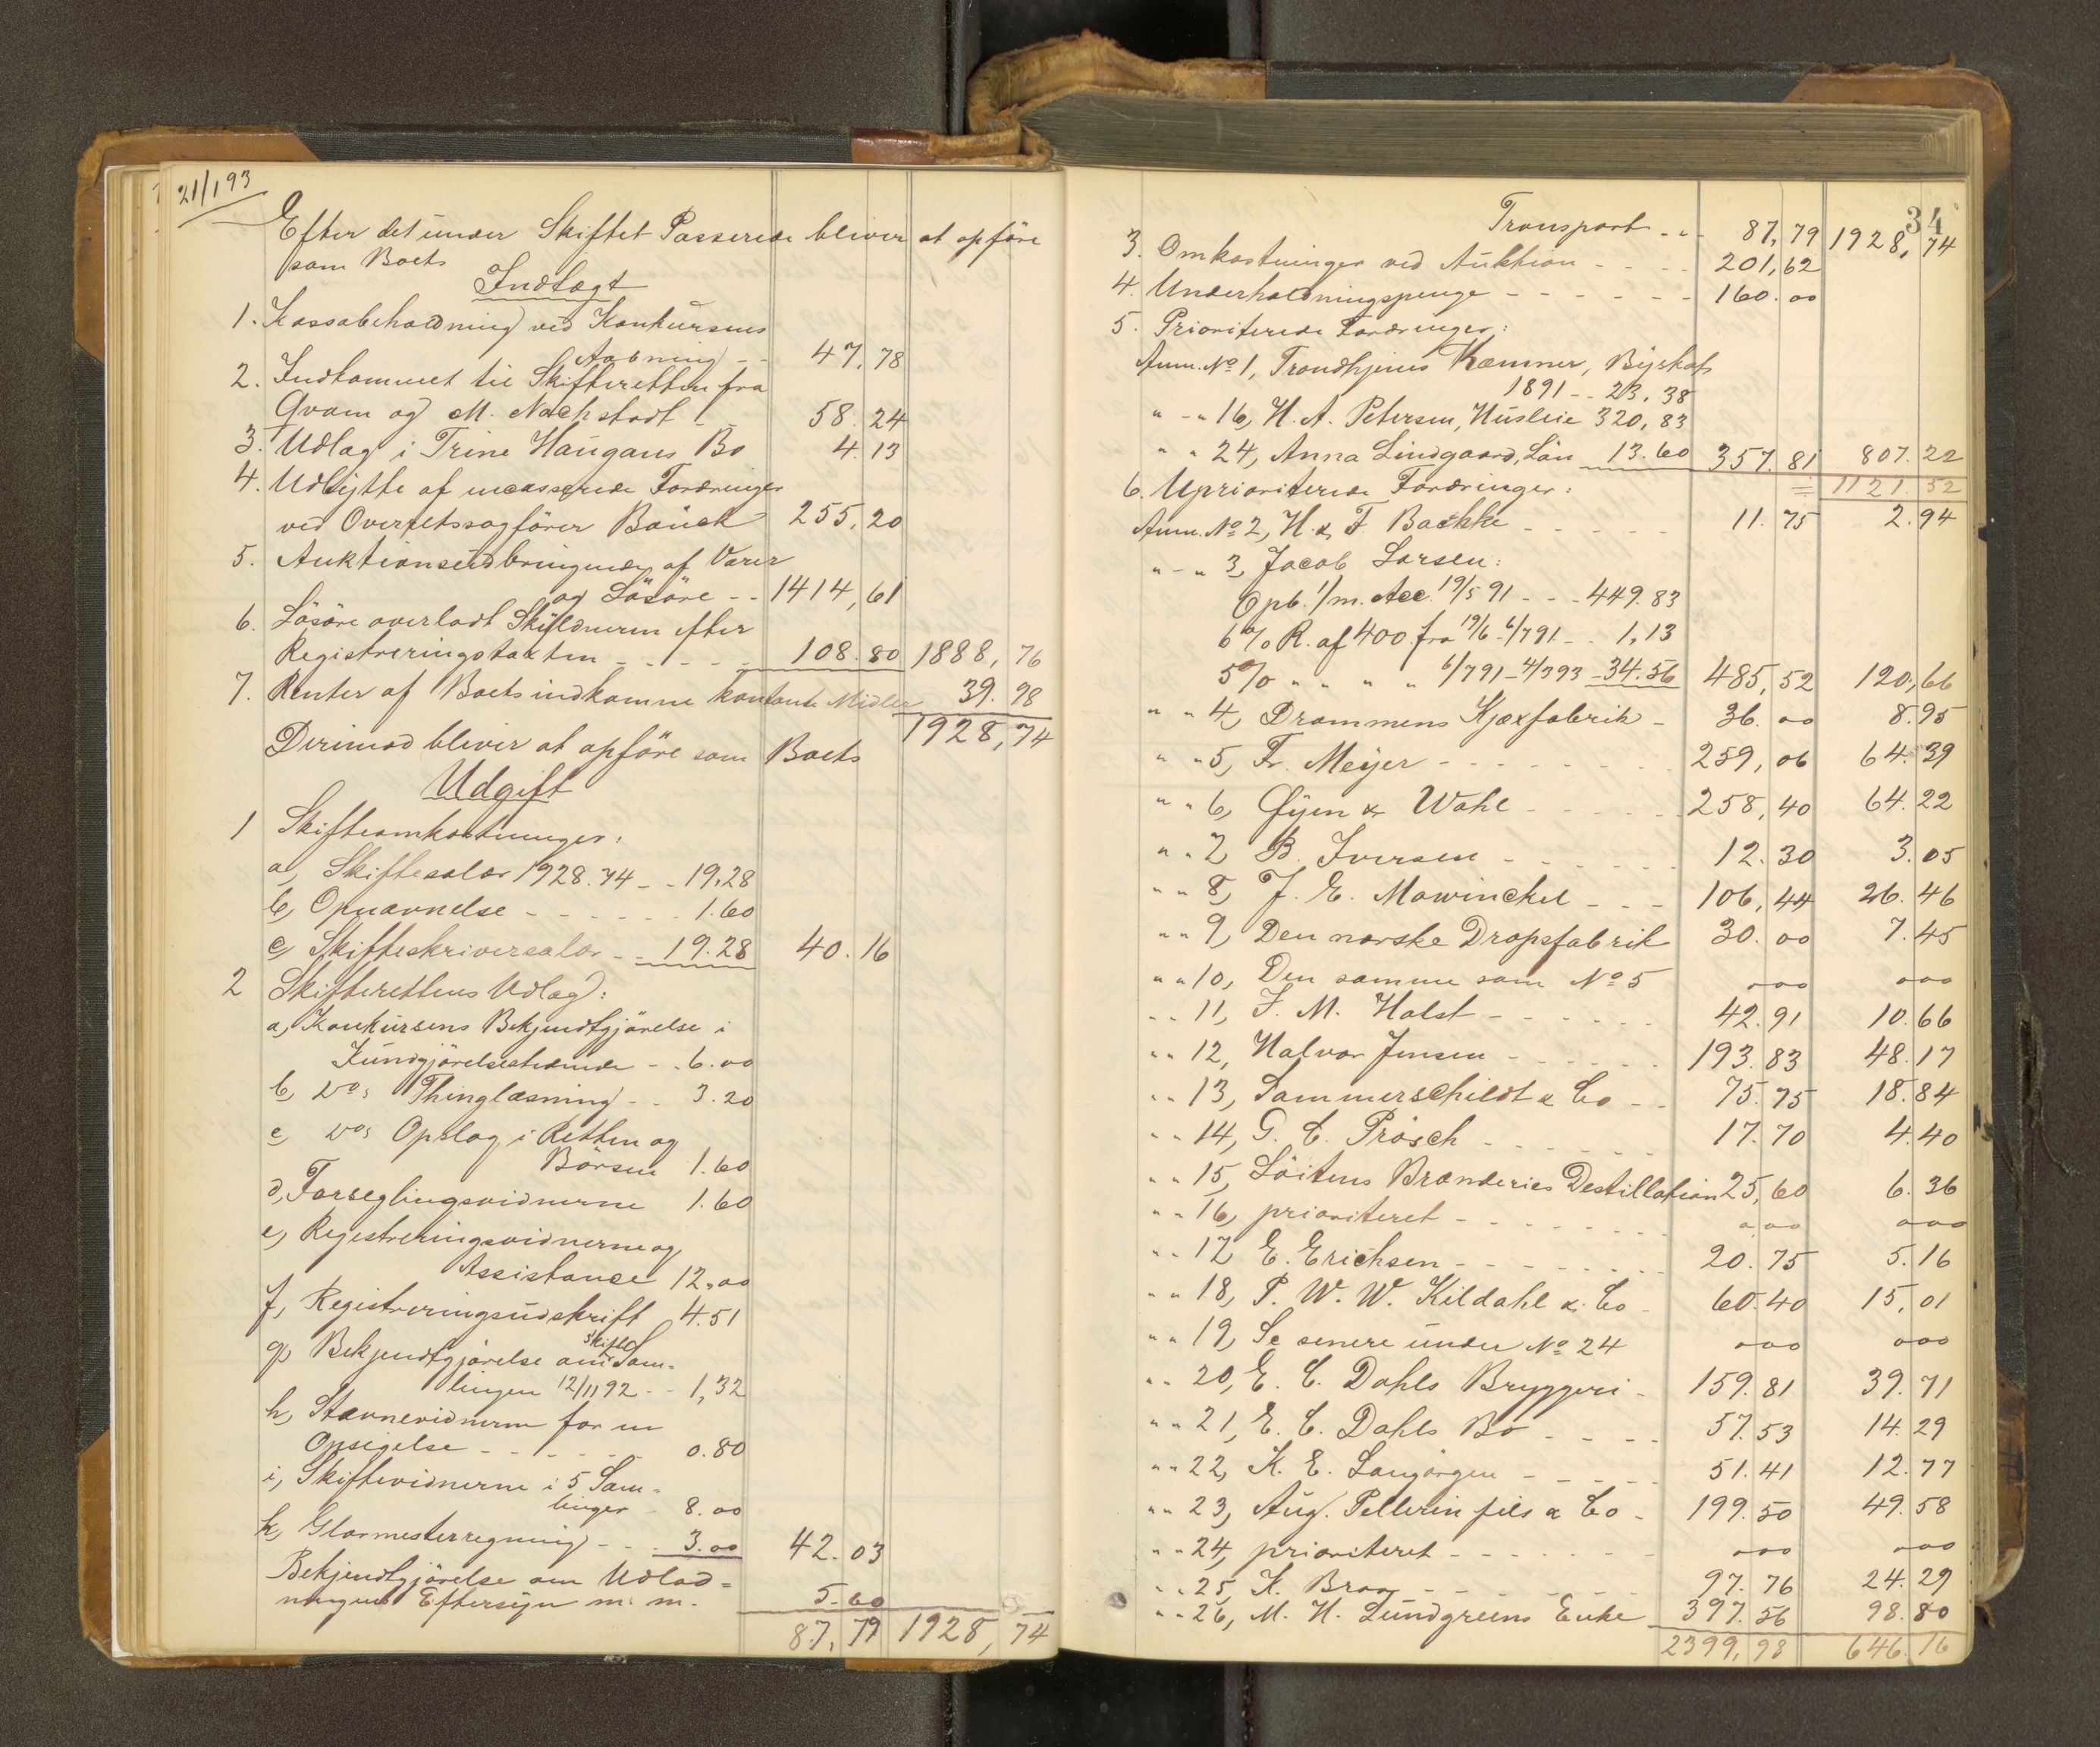 21/1 93
Efter det under Skiftet Passerede bliver at opføre
som Boets
Indtægt
1. Kassabeholdning ved Konkursens
Aabning - - 47.78
2. Indkommet til Skifteretten fra
Qvam og M. Nachstadt - 58.24
3. Udlæg i Trine Haugans Bo 4.13
4. Udbytte af incasserede Fordringer
ved Overretssagfører Bauck 255,20
5. Auktionsudbringende af Varer
og Løsøre - - 1414,61
6. Løsøre overladt Skyldneren efter
Registreringstaxten - - - - - 108.80 1888,76
7. Renter af Boets indkomne kontante Midler 39.98
1928,74
Derimod bliver at opføre som Boets
Udgift
1 Skifteomkostninger:
a, Skiftesalær 1928.74 - - 19,28
b, Opnævnelse - - - - - - 1.60
c, Skifteskriversalær - - 19.28 40.16
2 Skifterettens Udlæg:
a, Konkursens Bekjendtgjørelse i
Kundgjørelsestidende - - 6.00
b, Do s Thinglæsning - - 3.20
c, Do s Opslag i Retten og
Børsen 1.60
d, Forseglingsvidnerne 1.60
e, Registreringsvidnerne og
Assistance 12.00
f, Registreringsudskrift 4.51
g, Bekjendtgjørelse om Skifte Sam-
lingen 12/11 92 - - 1,32
h, Stævnevidnerne for en
Opsigelse - - - - - - 0.80
i, Skiftevidnerne i 5 Sam-
linger - 8.00
k, Glarmesterregning - - - 3.00 42.03
Bekjendtgjørelse om Udlod=
ningens Eftersyn m. m. 5.60
87,79 1928,74
34
Transport - - 87,79 1928,74
3. Omkostninger ved Auktion - - - - 201,62
4. Underholdningspenge - - - - - - 160.00
5. Prioriterede Fordringer:
Anm. No 1, Trondhjems Kæmner, Byskat
1891 - - 23.38
" - " 16, H. A. Petersen, Husleie 320,83
" " 24, Anna Lindgaard, Løn 13.60 357.81 807.22
= 1121.52
6. Uprioriterede Fordringer:
Anm. No 2, H. & F. Bachke - - - - - 11.75 2.94
" - " 3, Jacob Larsen:
Opb. 1/m. Acc. 19/5 91 - - - 449.83
6% R. af 400 fra 19/6 - 6/7 91 - - 1,13
5% " " " " 6/7 91 - 4/3 93 - 34.56 485,52 120,66
" " 4, Drammens Kjæxfabrik - 36.00 8.95
" " 5, Fr. Meyer - - - - - - - - 259,06 64.39
" " 6, Øyen & Wahl - - - - - - 258,40 64.22
" " 7, B. Iversen - - - - - - 12.30 3.05
" " 8, J. E. Mowinckel - - - 106,44 26.46
" " 9, Den norske Dropsfabrik 30.00 7.45
" " 10, Den samme som No 5 ooo ooo
" " 11, F. M. Holst - - - - - - 42.91 10.66
" " 12, Halvor Jensen - - - - - - 193.83 48.17
" " 13, Sommerschildt & Co - - 75.75 18.84
" " 14, G. C. Prösch - - - - - - 17.70 4.40
" " 15, Løitens Brænderies Destillation 25,60 6.36
" " 16, prioriteret - - - - - - - ooo ooo
" " 17, E. Erichsen - - - - - - - - 20.75 5.16
" " 18, P. W. W. Kildahl & Co - 60.40 15,01
" " 19, Se senere under No 24 ooo ooo
" " 20, E. C. Dahls Bryggeri - 159.81 39.71
" " 21, E. C. Dahls Bo - - - - 57.53 14.29
" " 22, K. E. Langørgen - - - - - 51.41 12.77
" " 23, Aug. Pellerin fils & Co - 199.50 49.58
" " 24, prioriteret - - - - - - - ooo ooo
" " 25, K. Braa - - - - - - - 97.76 24.29
" " 26, M. H. Lundgreens Enke 397.56 98.80
2399,98 646.16